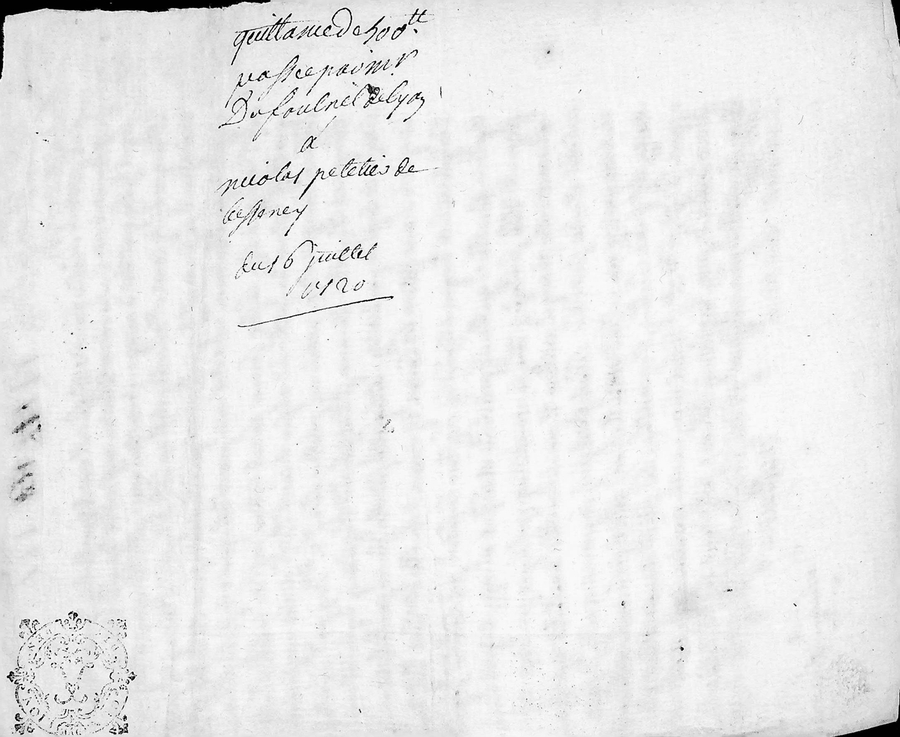 quittance de 500tt
passee par mr
Dufournel de Lyon
a
nicolas peletier de
besseney
du 16 juillet
1720